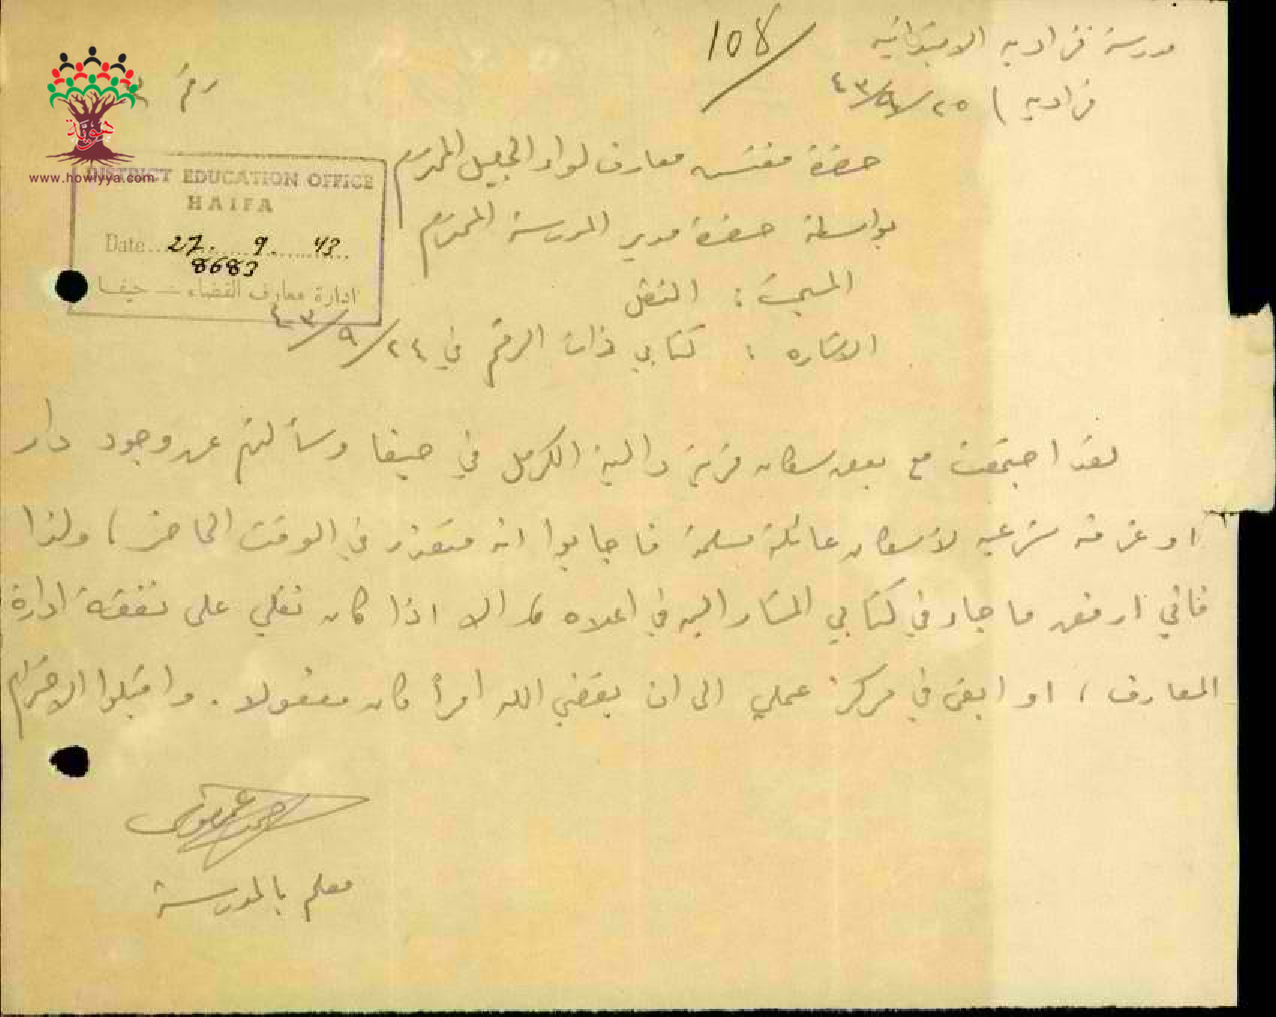 مدرسة فراديه الابتدائيه
108
فراديه ) ٢٥/٩/٤٣
رقم
حضرة مفتش معارف لواء الجليل المحترم
بواسطة حضرة مدير المدرسة المحترم
المبحث : النقل
الاشاره : كتابي ذات الرقم في ٢٤/٩/٤٣
www.howiyya.com
DISTRICT EDUCATION OFFICE
HAIFA
Date 27. 9. 43
8683
ادارة معارف القضاء - حيفا
لقد اجتمعت مع بعض سكان قرية دالية الكرمل في حيفا وسألتهم عن وجود دار
او غرفه شرعيه لاسكان عائلة مسلمة فاجابوا انه متعذر في الوقت الحاضر ، ولذا
فاني ارفض ما جاء في كتابي المشار اليه في اعلاه الا اذا كان نقلي على نفقة ادارة
المعارف ، او ابقى في مركز عملي الى ان يقضي الله امرأ كان مفعولا . واقبلوا الاحترام
معلم بالمدرسة